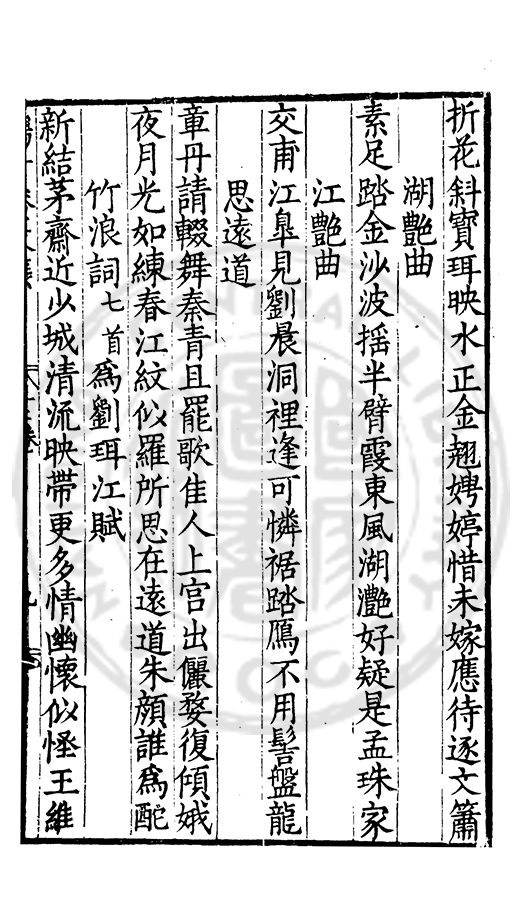 折花斜寶珥映水正金翹娉婷惜未嫁應待逐文簫
湖艷曲
素足踏金沙波揺半臂霞東風湖灔好疑是孟珠家
江艷曲
交甫江臯見劉晨洞裡逢可憐裾踏鴈不用髻盤龍
思遠道
章丹請輟舞秦青且罷歌佳人上宫出儷婺復傾娥
夜月光如練春江紋似羅所思在遠道朱顔誰爲酡
竹浪詞七首爲劉珥江賦
新結茅齋近少城清流映帶更多情幽懷似怪王維